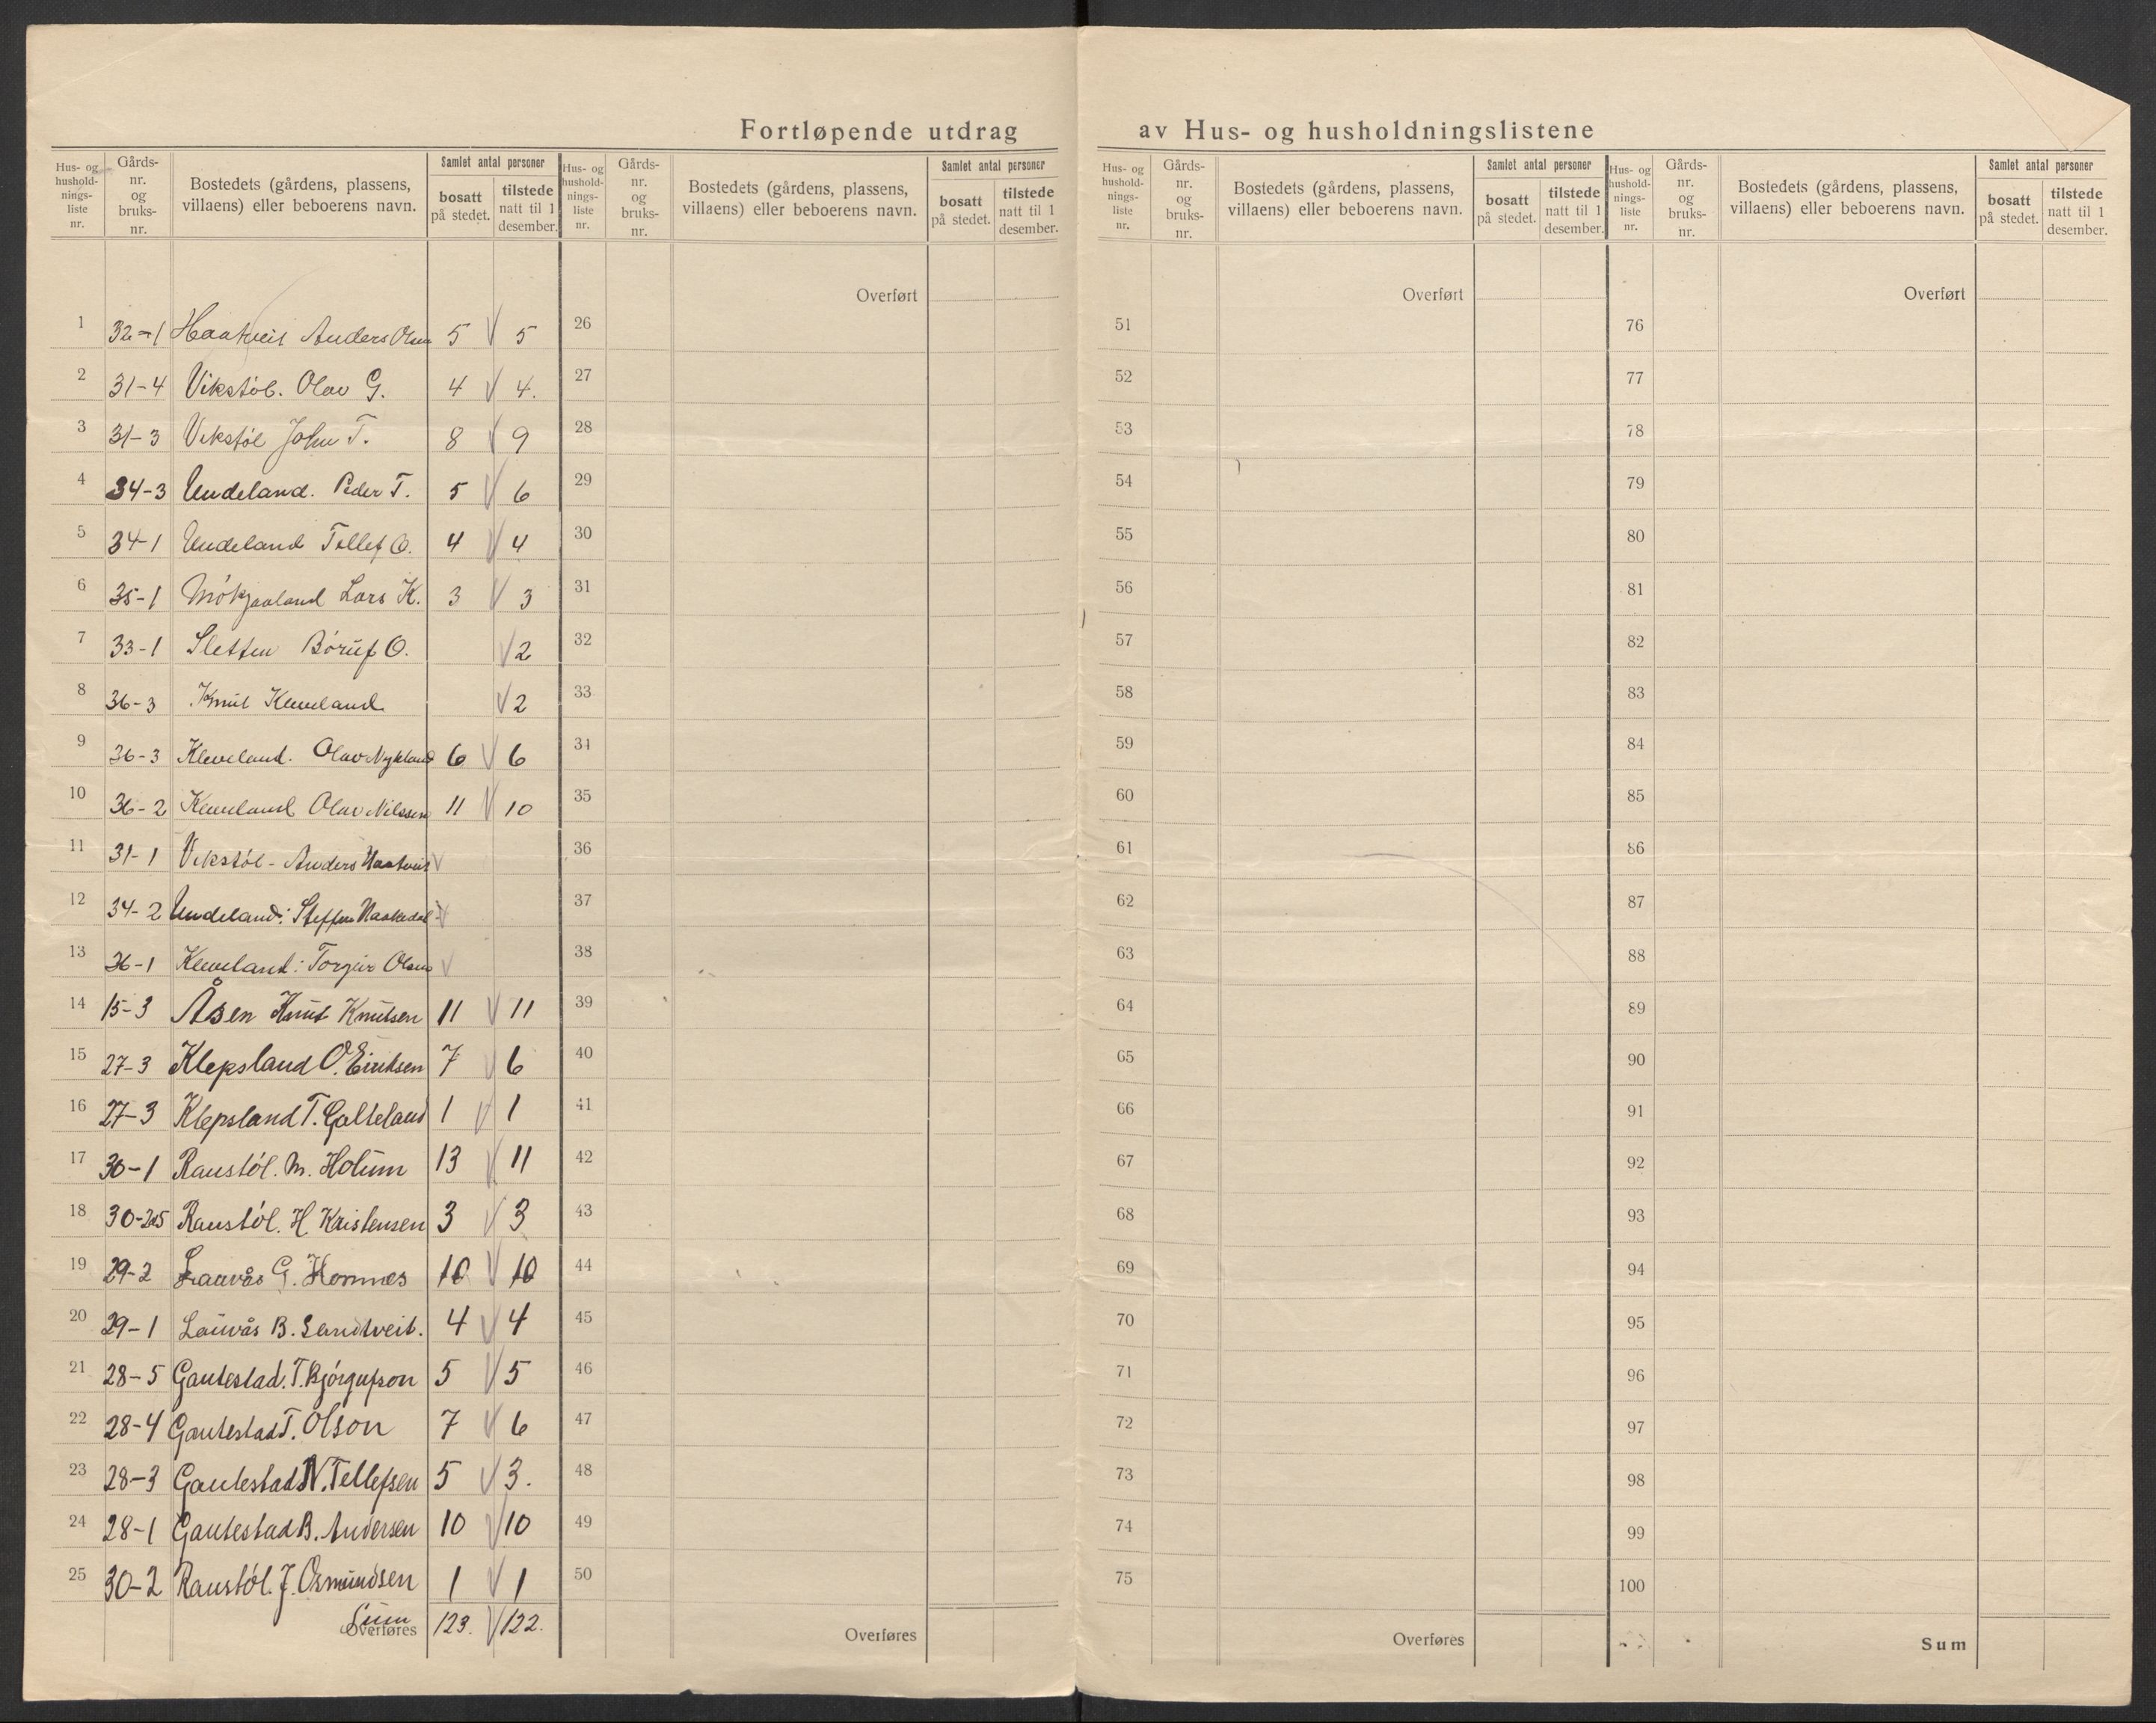 Fortløpende utdrag av Hus- og husholdningslistene
Hus- og hushold-nings-liste nr. | Gårds-nr. og bruks-nr. | Bostedets (gårdens, plassens, villaens) eller beboerens navn. | Samlet antal personer | bosatt på stedet. | tilstede natt til 1 desember.
Hus- og hushold-nings-liste nr. | Gårds-nr. og bruks-nr. | Bostedets (gårdens, plassens, villaens) eller beboerens navn. | Samlet antal personer | bosatt på stedet. | tilstede natt til 1 desember.
Hus- og hushold-nings-liste nr. | Gårds-nr. og bruks-nr. | Bostedets (gårdens, plassens, villaens) eller beboerens navn. | Samlet antal personer | bosatt på stedet. | tilstede natt til 1 desember.
Hus- og hushold-nings-liste nr. | Gårds-nr. og bruks-nr. | Bostedets (gårdens, plassens, villaens) eller beboerens navn. | Samlet antal personer | bosatt på stedet. | tilstede natt til 1 desember.
Overført Overført Overført
1 32-1 Haatveit Anders Olsen 5 V 5 26 51 76
2 31-4 Vikstøl. Olav G. 4 V 4. 27 52 77
3 31-3 Vikstøl John T. 8 V 9 28 53 78
4 34-3 Undeland. Peder T. 5 V 6 29 54 79
5 34-1 Undeland Tellef O. 4 V 4 30 55 80
6 35-1 Lars K. 3 V 3 31 56 81
7 33-1 Sletten Børuf O. V 2 32 57 82
8 36-3 Knut Kleveland V 2 33 58 83
9 36-3 Kleveland. Olav Nykland 6 V 6 34 59 84
10 36-2 Kleveland Olav Nilssen 11 V 10 35 60 85
11 31-1 Vikstøl - Anders Haatveit V 36 61 86
12 34-2 Undeland: Steffen V 37 62 87
13 36-1 Kleveland: Torgeir Olsen V 38 63 88
14 15-3 Åsen Knut Knutsen 11 V 11 39 64 89
15 27-3 Klepsland O. Eiriksen 7 V 6 40 65 90
16 27-3 Klepsland T. Galteland 1 V 1 41 66 91
17 30-1 Raustøl. M. Holum 13 V 11 42 67 92
18 30-2a5 Raustøl. H Kristensen 3 V 3 43 68 93
19 29-2 Lauvås G. Homnes 10 V 10 44 69 94
20 29-1 Lauvås B. Sandtveit. 4 V 4 45 70 95
21 28-5 Gautestad. T. Bjørgufson 5 V 5 46 71 96
22 28-4 Gautestad T. Olson 7 V 6 47 72 97
23 28-3 Gautestad N. Tellefsen 5 V 3. 48 73 98
24 28-1 Gautestad B. Andersen 10 V 10 49 74 99
25 30-2 Raustøl. J. Osmundsen 1 V 1 50 75 100
Sum 123. V 122.
Overføres Overføres Overføres Sum